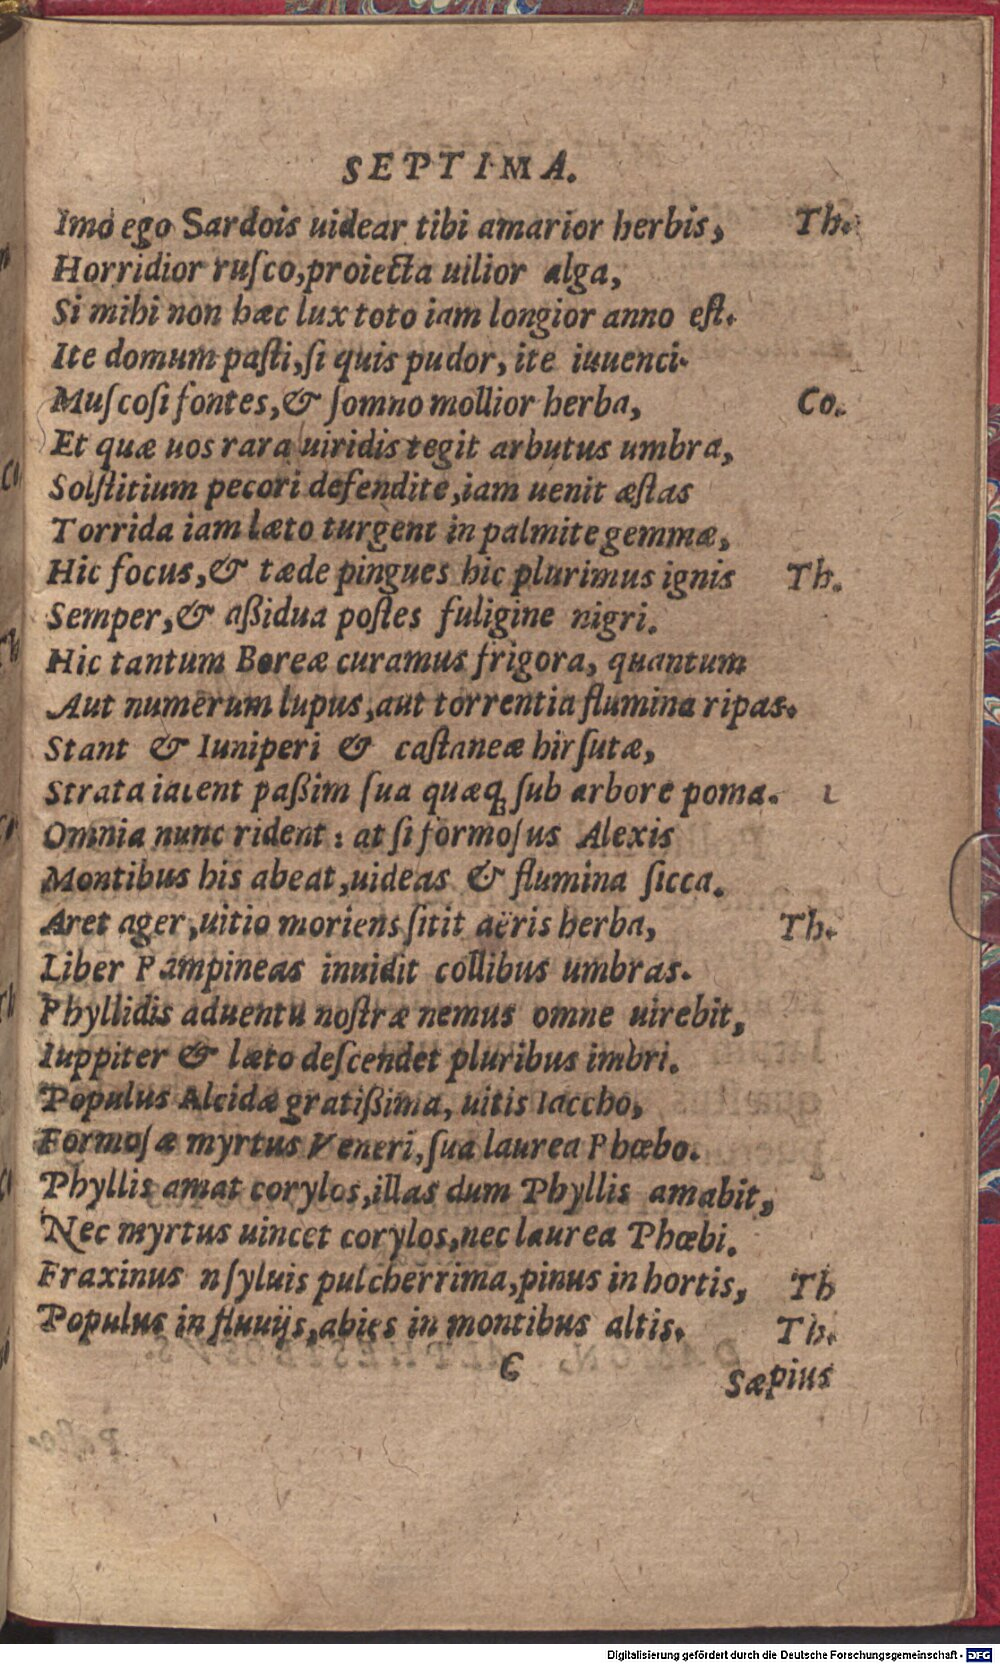 SEPTIMA.
Imò ego Sardois uidear tibi amarior herbis, Th.
Horridior ruſco,proiecta uilior alga,
Si mihi non hæc lux toto iam longior anno eſt.
Ite domum paſti,ſi quis pudor, ite iuuenci.
Muſcoſi fontes,& ſomno mollior herba, Co.
Et quæ uos rara uiridis tegit arbutus umbra,
Solſtitium pecori defendite,iam uenit æſtas
Torrida iam læto turgent in palmite gemmæ,
Hic focus,& tæde pingues hic plurimus ignis Th.
Semper,& aßidua poſtes fuligine nigri.
Hic tantum Boreæ curamus frigora, quantum
Aut numerum lupus,aut torrentia flumina ripas.
Stant & Iuniperi & caſtaneæ hirſutæ,
Strata iacent paßim ſua quæq; ſub arbore poma.
Omnia nunc rident : at ſi formoſus Alexis
Montibus his abeat,uideas & flumina ſicca.
Aret ager,uitio moriens ſitit aëris herba, Th.
Liber Pampineas inuidit collibus umbras.
Phyllidis aduentu noſtræ nemus omne uirebit,
Iuppiter & læto deſcendet pluribus imbri.
Populus Alcidæ gratißima, uitis Iaccho,
Formoſæ myrtus Veneri,ſua laurea Phœbo.
Phyllis amat corylos,illas dum Phyllis amabit,
Nec myrtus uincet corylos,nec laurea Phœbi.
Fraxinus n ſyluis pulcherrima,pinus in hortis, Th
Populus in fluuijs,abies in montibus altis. Th.
C
Sæpius
Digitalisierung gefördert durch die Deutsche Forschungsgemeinschaft - DFG